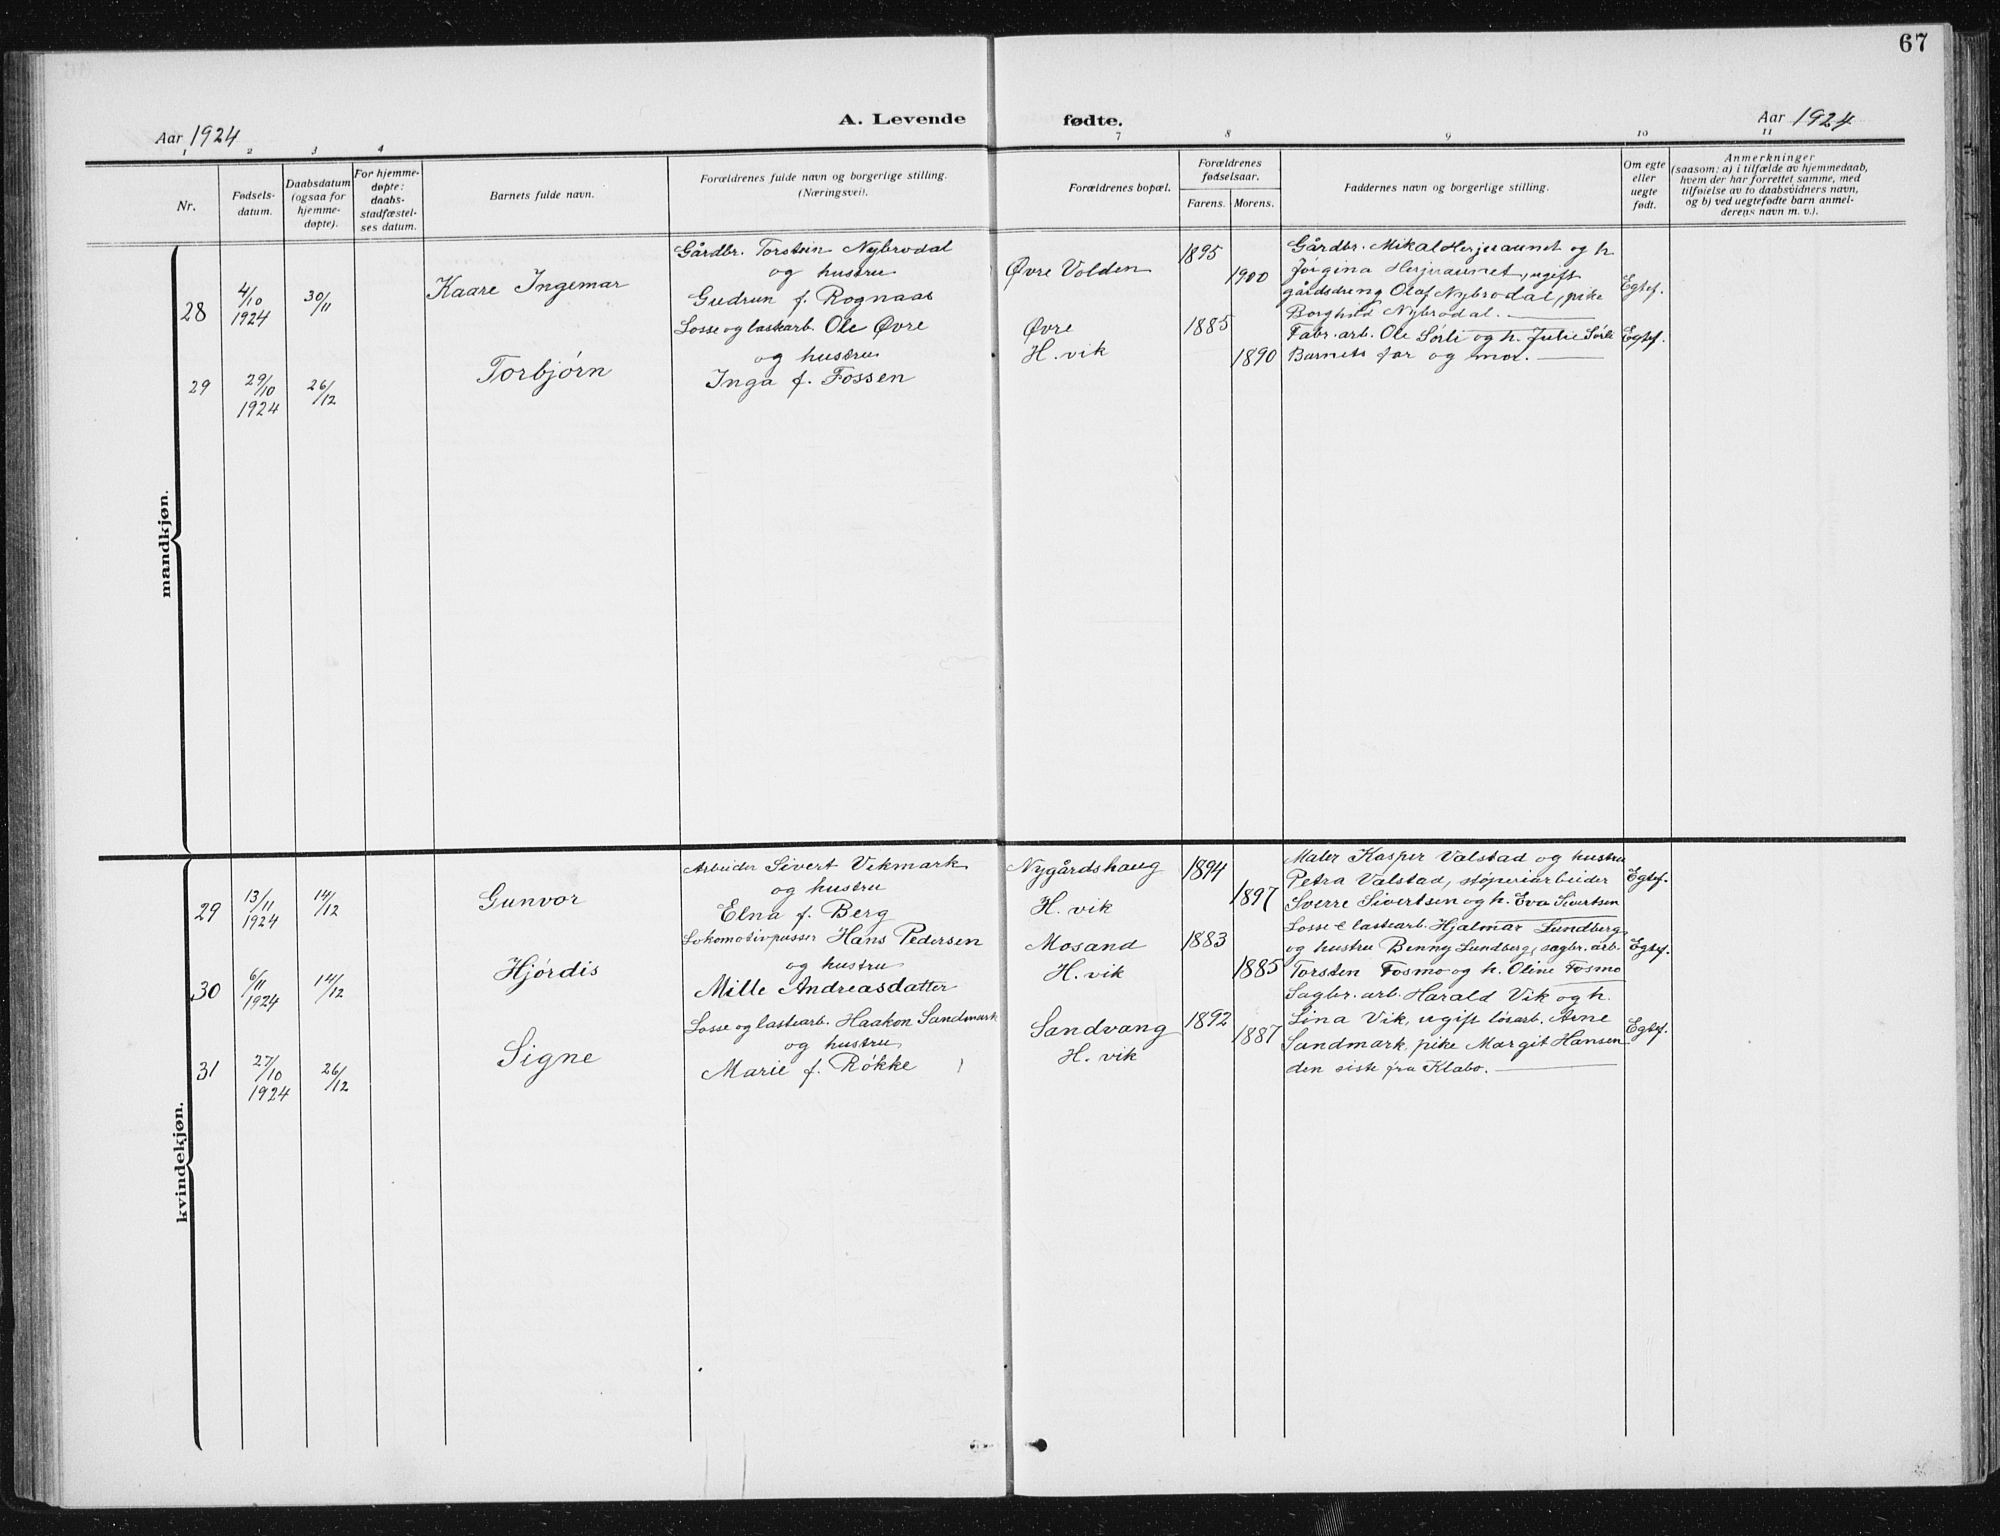 67
Aar 1924
A. Levende fødte.
Aar 1924
1 2 3 4 7 8 9 10 11
Nr.
Fødsels-
datum.
Daabsdatum
(ogsaa for
hjemme-
døpte).
For hjemme-
døpte:
daabs-
stadfæstel-
ses datum.
Barnets fulde navn.
Forældrenes fulde navn og borgerlige stilling.
(Næringsvei).
Forældrenes bopæl.
Forældrenes
fødselsaar.
Farens. Morens.
Faddernes navn og borgerlige stilling.
Om egte
eller
uegte
født.
Anmerkninger
(saasom: a) i tilfælde av hjemmedaab,
hvem der har forrettet samme, med
tilføielse av to daabsvidners navn,
og b) ved uegtefødte barn anmel-
derens navn m. v.).
mandkjøn.
28
4/10
1924
30/11
Kaare Ingemar
Gårdbr. Torstein Nybrodal
og hustru
Gudrun f. Rognaas
Øvre Volden
1895
1900
Gårdbr. Mikal Herjuaunet og h
Jørgina Herjuaunet, ugift
gårdsdreng Olaf Nybrodal, pike
Borghild Nybrodal.
Egtef.
29
29/10
1924
26/12
Torbjørn
Losse og lastearb. Ole Øvre
og hustru
Inga f. Fossen
Øvre
H. vik
1885
1890
Fabr. arb. Ole Sørli og h. Julie Sørli
Barnets far og mor.
Egtef.
kvindekjøn.
29
13/11
1924
14/12
Gunvor
Arbeider Sivert Vikmark
og hustru
Elna f. Berg
Nygårdshaug
H. vik
1894
1897
Maler Kasper Valstad og hustru
Petra Valstad, støperiarbeider
Sverre Sivertsen og h. Eva Sivertsen
Egtef.
30
6/11
1924
14/12
Hjørdis
Lokomotivpusser Hans Pedersen
og hustru
Mille Andreasdatter
Mosand
H. vik
1883
1885
Losse & lastearb. Hjalmar Lundberg
og hustru Benny Lundberg, sagbr. arb.
Torsten Fosmo og h. Oline Fosmo
Egtef.
31
27/10
1924
26/12
Signe
Losse og lastearb. Haakon Sandmark
og hustru
Marie f. Røkke
Sandvang
H. vik
1892
1887
Sagbr. arb. Harald Vik og h.
Lina Vik, ugift løsarb. Arne
Sandmark, pike Margit Hansen
den siste fra Klabo.
Egtef.